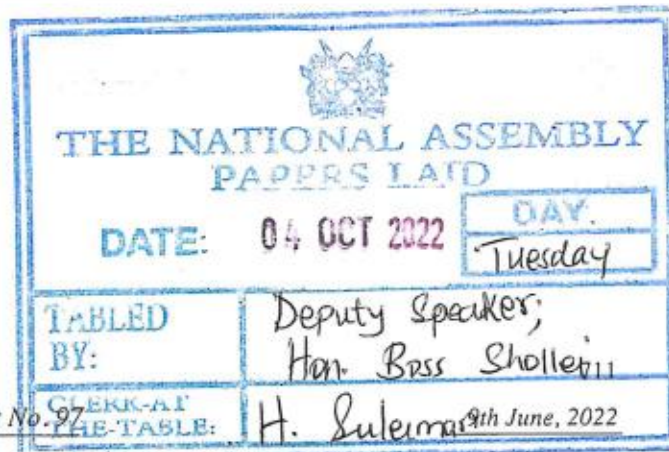 THE NATIONAL ASSEMBLY
PAPERS LAID
DAY.
DATE: 04 OCT 2022
Tuesday
TABLED Deputy Speaker;
BY: Hon. Boss Shollei
No. 97
CLERK-AT
THE-TABLE: H. Suleiman 9th June, 2022